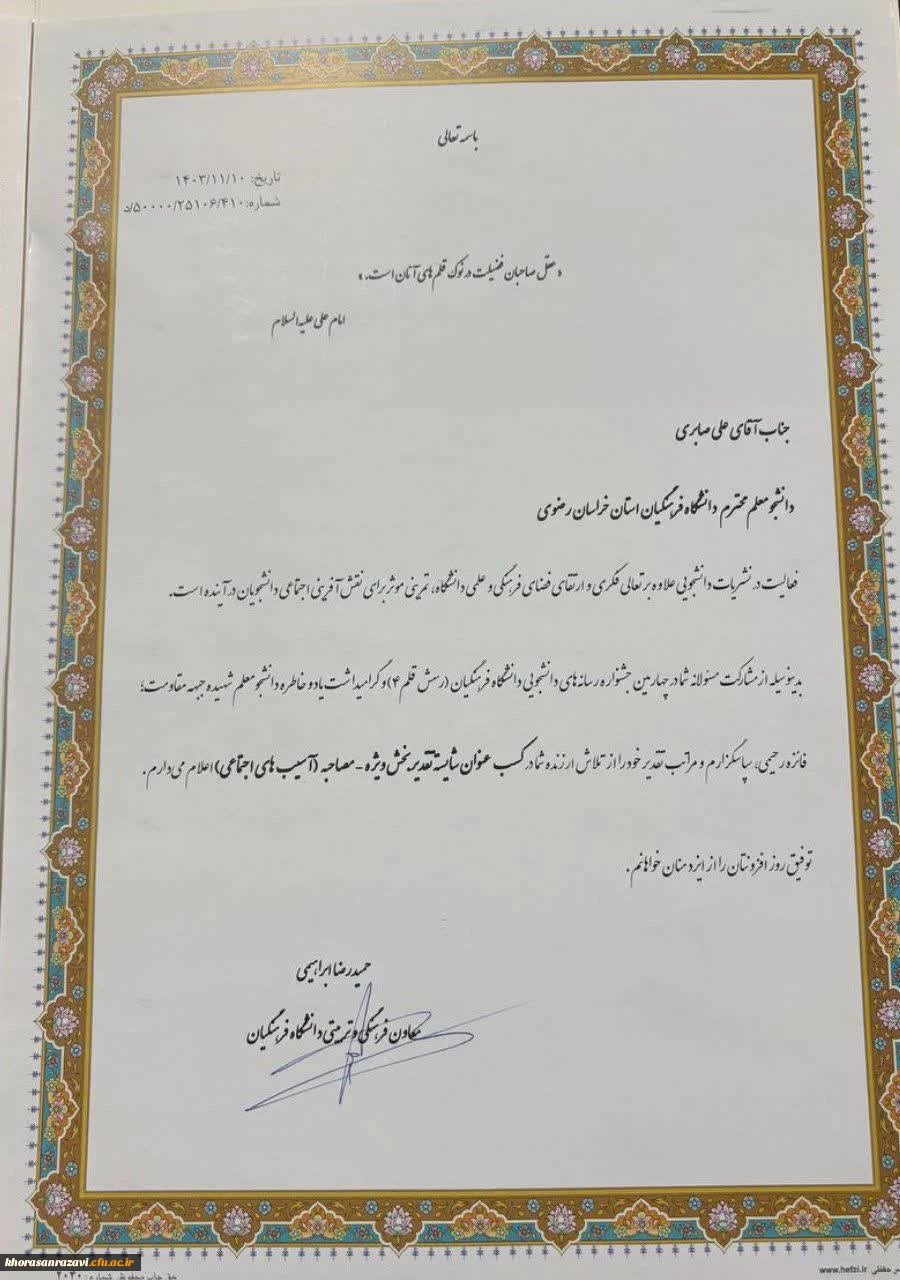 باسمه تعالی
تاریخ: ۱۴۰۳/۱۱/۱۰
شماره: ۵۰۰۰۰/۲۵۱۰۶/۴۱۰/د
« عقل صاحبان فضیلت در نوک قلم های آنان است. »
امام علی علیه السلام
جناب آقای علی صابری
دانشجو معلم محترم دانشگاه فرهنگیان استان خراسان رضوی
فعالیت در نشریات دانشجویی علاوه بر تعالی فکری و ارتقای فضای فرهنگی و علمی دانشگاه، تمرینی موثر برای نقش آفرینی اجتماعی دانشجویان در آینده است.
بدینوسیله از مشارکت مسئولانه شما در چهارمین جشنواره رسانه های دانشجویی دانشگاه فرهنگیان (رسش قلم ۴) و گرامیداشت یاد و خاطره دانشجو معلم شهیده جبهه مقاومت؛
فائزه رحیمی، سپاسگزارم و مراتب تقدیر خود را از تلاش ارزنده شما در کسب عنوان شایسته تقدیر بخش ویژه - مصاحبه (آسیب های اجتماعی) اعلام می دارم.
توفیق روز افزونتان را از ایزد منان خواهانم.
حمیدرضا ابراهیمی
معاون فرهنگی و تربیتی دانشگاه فرهنگیان
khorasanrazavi.cfu.ac.ir
www.hefzi.ir